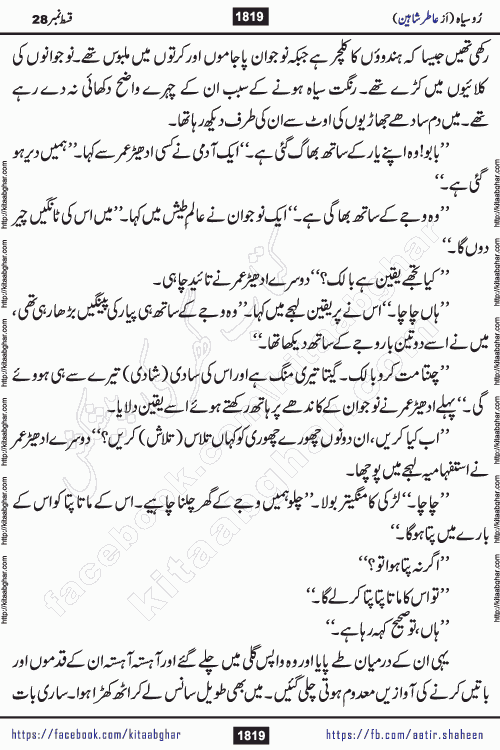 رُوسیاہ (اَز عاطر شاہین) 1819 قسط نمبر 28
رکھی تھیں جیسا کہ ہندوؤں کا کلچر ہے جبکہ نوجوان پاجاموں اور کرتوں میں ملبوس تھے۔ نوجوانوں کی
کلائیوں میں کڑے تھے۔ رنگت سیاہ ہونے کے سبب ان کے چہرے واضح دکھائی نہ دے رہے
تھے۔ میں دم سادھے جھاڑیوں کی اوٹ سے ان کی طرف دیکھ رہا تھا۔
’’بابو! وہ اپنے یار کے ساتھ بھاگ گئی ہے۔‘‘ ایک آدمی نے کسی ادھیڑ عمر سے کہا۔ ’’ہمیں دیر ہو
گئی ہے۔‘‘
’’وہ وجے کے ساتھ بھاگی ہے۔‘‘ ایک نوجوان نے عالمِ طیش میں کہا۔ ’’میں اس کی ٹانگیں چیر
دوں گا۔‘‘
’’کیا تجھے یقین ہے بالک؟‘‘ دوسرے ادھیڑ عمر نے تائید چاہی۔
’’ہاں چاچا۔‘‘ اس نے پریقین لہجے میں کہا۔ ’’وہ وجے کے ساتھ ہی پیار کی پینگیں بڑھا رہی تھی،
میں نے اسے دو تین بار وجے کے ساتھ دیکھا تھا۔‘‘
’’چنتا مت کرو بالک۔ گیتا تیری منگ ہے اور اس کی سادی (شادی) تیرے سے ہی ہووئے
گی۔‘‘ پہلے ادھیڑ عمر نے نوجوان کے کاندھے پر ہاتھ رکھتے ہوئے اسے یقین دلایا۔
’’اب کیا کریں، ان دونوں چھورے چھوری کو کہاں تلاس (تلاش) کریں؟‘‘ دوسرے ادھیڑ عمر
نے استفہامیہ لہجے میں پوچھا۔
’’چاچا۔‘‘ لڑکی کا منگیتر بولا۔ ’’چلو ہمیں وجے کے گھر چلنا چاہیے۔ اس کے ماتا پتا کو اس کے
بارے میں پتا ہوگا۔‘‘
’’اگر نہ پتا ہوا تو؟‘‘
’’تو اس کا ماتا پتا پتا کر لے گا۔‘‘
’’ہاں، تو صحیح کہہ رہا ہے۔‘‘
یہی ان کے درمیان طے پایا اور وہ واپس گلی میں چلے گئے اور آہستہ آہستہ ان کے قدموں اور
باتیں کرنے کی آوازیں معدوم ہوتی چلی گئیں۔ میں بھی طویل سانس لے کر اٹھ کھڑا ہوا۔ ساری بات
https://facebook.com/kitaabghar 1819 https://fb.com/aatir.shaheen
http://kitaabghar.com
http://kitaabghar.com
http://kitaabghar.com
http://kitaabghar.com
http://kitaabghar.com
http://kitaabghar.com
facebook.com/kitaabghar
kitaabghar.com